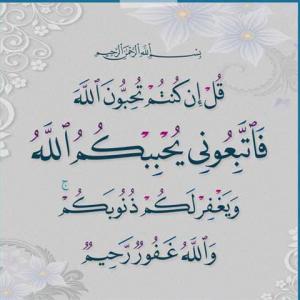 بِسْمِ اللَّهِ الرَّحْمَٰنِ الرَّحِيمِ
قُلْ إِن كُنتُمْ تُحِبُّونَ ٱللَّهَ
فَٱتَّبِعُونِى يُحْبِبْكُمُ ٱللَّهُ
وَيَغْفِرْ لَكُمْ ذُنُوبَكُمْ ۗ
وَٱللَّهُ غَفُورٌ رَّحِيمٌ